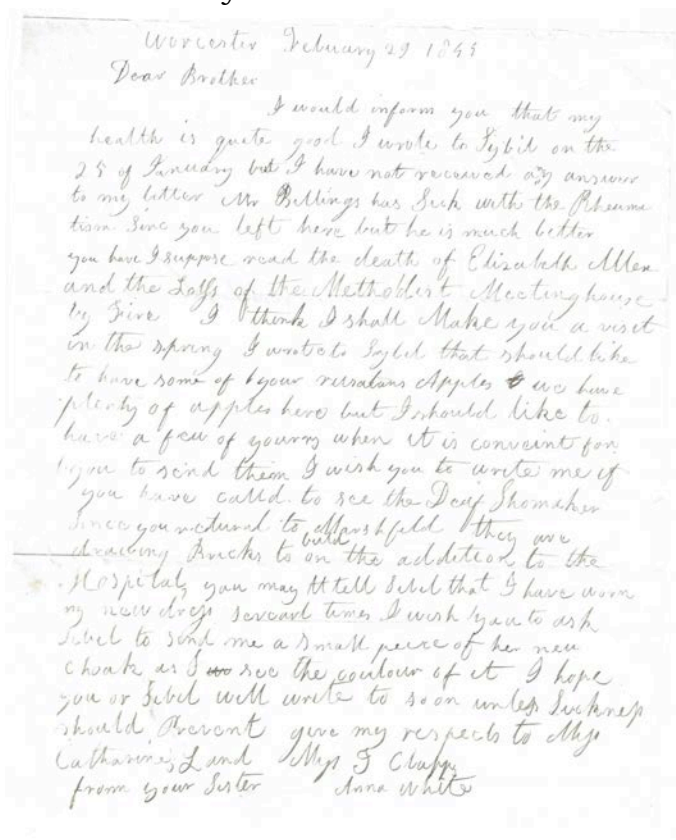 Worcester February 29 1844
Dear Brother
I would inform you that my
health is quite good I wrote to Sybil on the
25 of January but I have not received any answer
to my letter Mr Billings has Sick with the Rheuma
tism Sinc you left here but he is much better
you have I suppose read the death of Elizabeth Allen
and the Loss of the Methodist Meetinghouse
by Fire I think I shall Make you a visit
in the spring I wrote to Sybil that should like
to have some of your Apples we have
plenty of apples here but I should like to
have a few of yours when it is convient for
you to send them I wish you to write me if
you have calld to see the Deaf Shomaker
Since you returnd to Marshfield they are
drawing Bricks to build on the addition to the
Hospital, you may tell Sibel that I have worn
my new dress several times I wish you to ask
Sibel to send me a small peice of her new
Cloak as I see the coulour of it I hope
you or Sibel will write to soon unless Sickness
should Prevent give my respects to Miss
Catharine Land Miss F Clapp
from your Sister Anna White